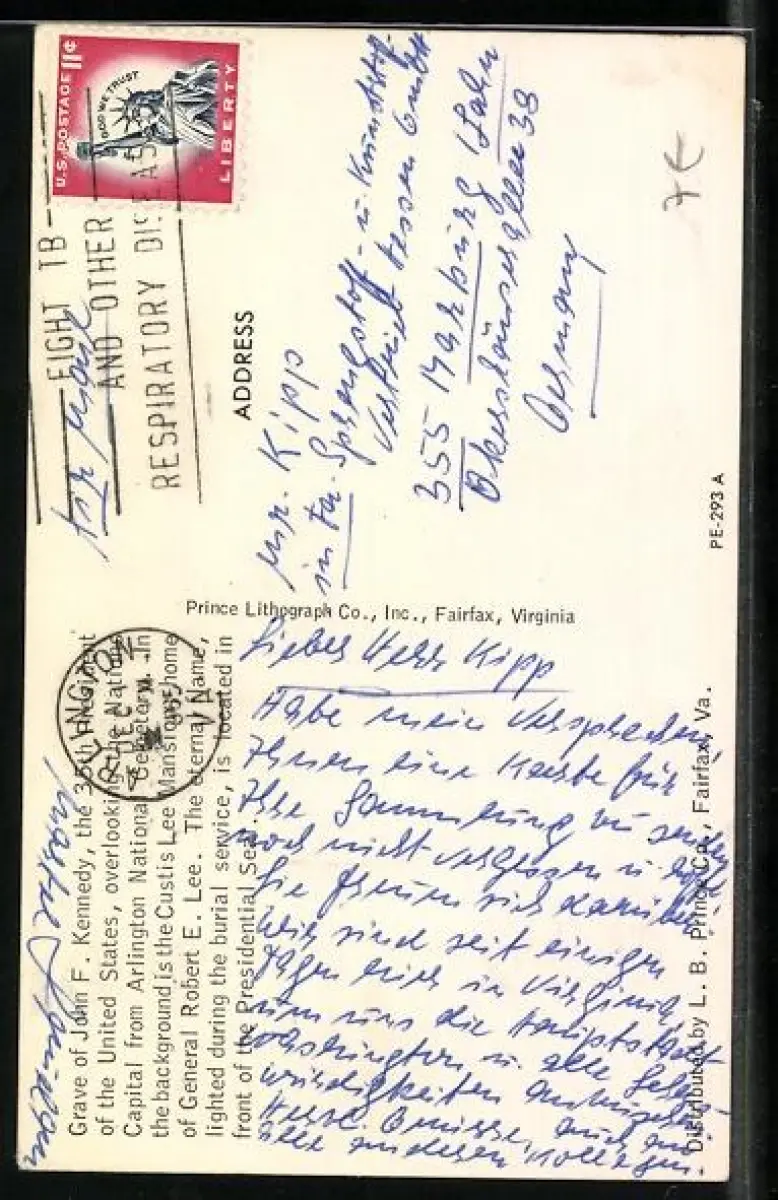 Grave of John F. Kennedy, the 35th President
of the United States, overlooking the Nation's
Capital from Arlington National Cemetery. In
the background is the Custis Lee Mansion, home
of General Robert E. Lee. The eternal flame,
lighted during the burial service, is located in
front of the Presidential Seal.
Lieber Herr Kipp
Habe mein Versprechen,
Ihnen eine Karte für
Ihre Sammlung zu senden
noch nicht vergessen u. hoffe
Sie freuen sich darüber.
Wir sind seit einigen
Tagen hier in Virginia,
um uns die Hauptstadt
Washington u. alle Sehens-
würdigkeiten anzusehen.
Herzl. Grüsse, auch an
alle anderen Kollegen.
Distributed by L. B. Prince Co., Fairfax, Va.
Prince Lithograph Co., Inc., Fairfax, Virginia
U.S. POSTAGE 11¢
IN GOD WE TRUST
LIBERTY
EIGHT TB
AND OTHER
RESPIRATORY DISEAS
ARLINGTON
DEC
VA
ADDRESS
Mr. Kipp
in Fa. Sprengstoff- u. Kunststoff-
Vertrieb Hessen GmbH
355 Marburg/Lahn
38
Germany
7€
PE-293 A